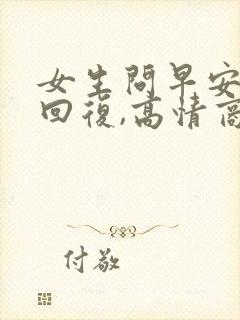 女生問早安
回復,高情商
付敬